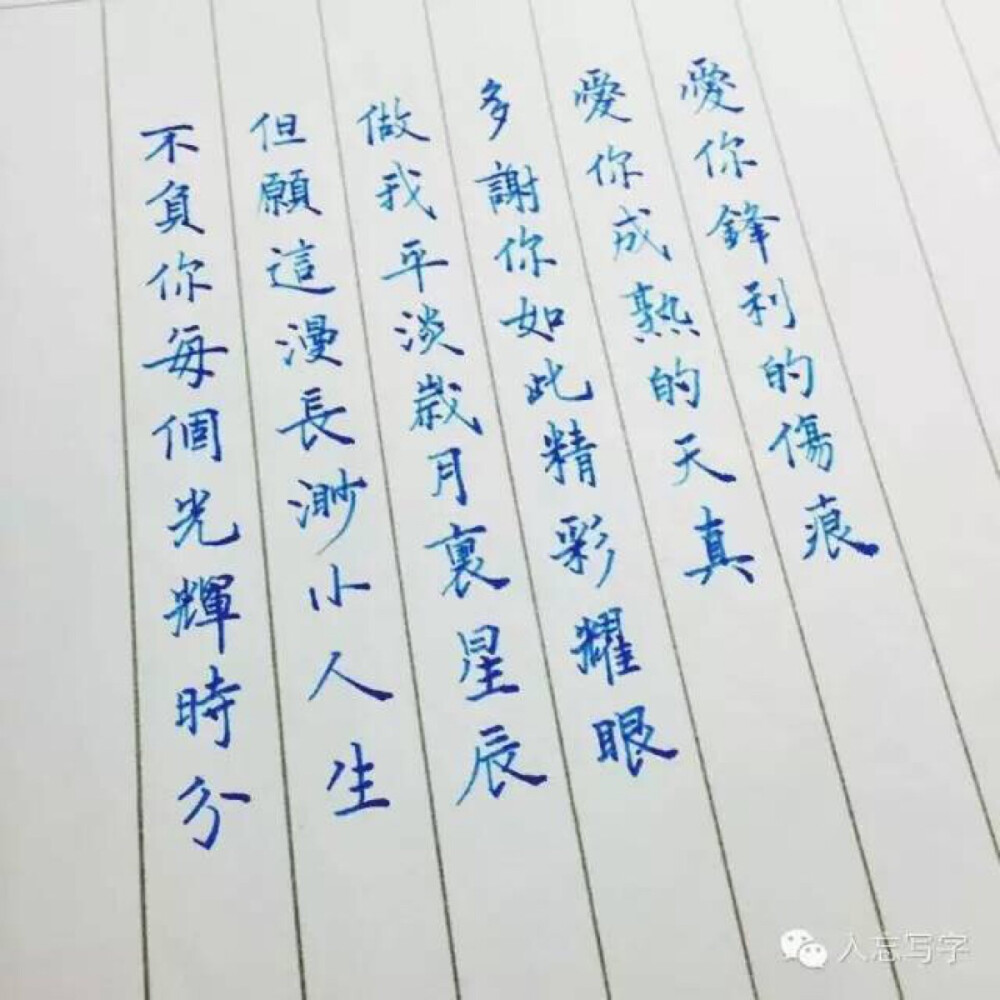 愛你鋒利的傷痕
愛你成熟的天真
多謝你如此精彩耀眼
做我平淡歲月裏星辰
但願這漫長渺小人生
不負你每個光輝時分
人忘写字